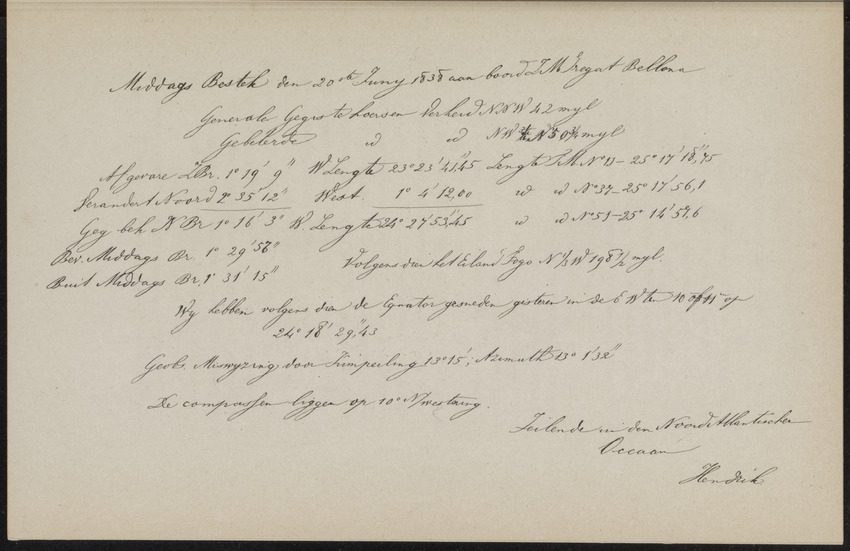 Middags Bestek den 20ste Juny 1838 aan boord Z.M. Fregat Bellona
Generale Gegiste koersen Verheid NNW 42 myl
Gebeterde id id NW myl
Afgevare Z Br. 1° 19' 9" W Lengte 23° 23' 41",45 Lengte T.M. N° 13 – 25° 17' 18",75
Verandert Noord 2° 35' 12" West 1° 4' 12,00 id id N° 37 – 25° 17' 56,1
Geg beh N Br 1° 16' 3" W. Lengte 24° 27' 53",45 id id N° 51 – 25° 14' 57,6
Bev. Middags Br. 1° 29' 58"
Buit Middags Br. 1° 31' 15" Volgens dien het Eiland Fogo N 1/3 W 198 1/2 myl.
Wy hebben volgens dien de Equator gesneden gisteren in de E Wt ten 10 of 11 op
24° 18' 29",43
Geobs. Miswyzing door Kimpeiling 13° 15'; Azimuth 13° 1' 32"
De compassen liggen op 10° N/westering.
Zeilende in den Noord Atlantischen
Oceaan
Hendrik